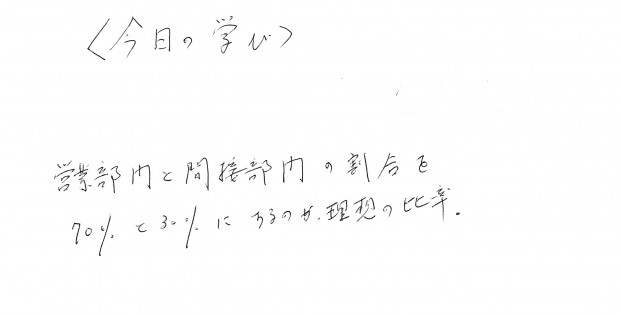 〈今日の学び〉
営業部内と間接部内の割合を
70%と30%にするのが、理想の比率。